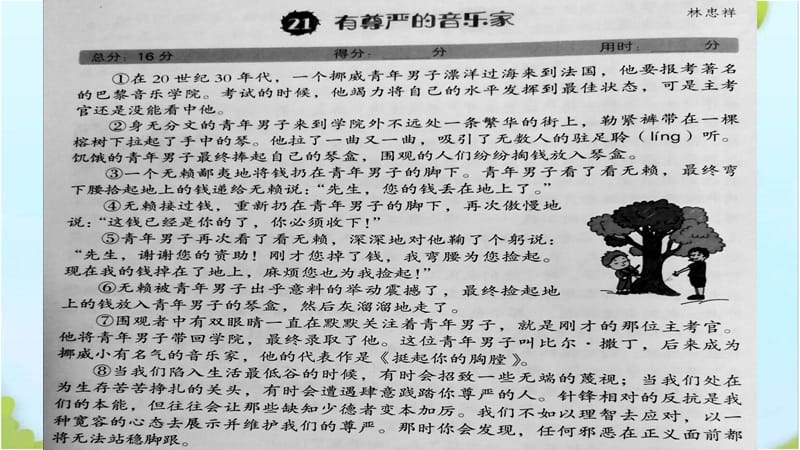 21 有尊严的音乐家
林忠祥
总分:16分 得分:____分 用时:____分
①在20世纪30年代,一个挪威青年男子漂洋过海来到法国,他要报考著名
的巴黎音乐学院。考试的时候,他竭力将自己的水平发挥到最佳状态,可是主考
官还是没能看中他。
②身无分文的青年男子来到学院外不远处一条繁华的街上,勒紧裤带在一棵
榕树下拉起了手中的琴。他拉了一曲又一曲,吸引了无数人的驻足聆(líng)听。
饥饿的青年男子最终捧起自己的琴盒,围观的人们纷纷掏钱放入琴盒。
③一个无赖鄙夷地将钱扔在青年男子的脚下。青年男子看了看无赖,最终弯
下腰拾起地上的钱递给无赖说:“先生,您的钱丢在地上了。”
④无赖接过钱,重新扔在青年男子的脚下,再次傲慢地
说:“这钱已经是你的了,你必须收下!”
⑤青年男子再次看了看无赖,深深地对他鞠了个躬说:
“先生,谢谢您的资助!刚才您掉了钱,我弯腰为您捡起。
现在我的钱掉在了地上,麻烦您也为我捡起!”
⑥无赖被青年男子出乎意料的举动震撼了,最终捡起地
上的钱放入青年男子的琴盒,然后灰溜溜地走了。
⑦围观者中有双眼睛一直在默默关注着青年男子,就是刚才的那位主考官。
他将青年男子带回学院,最终录取了他。这位青年男子叫比尔·撒丁,后来成为
挪威小有名气的音乐家,他的代表作是《挺起你的胸膛》。
⑧当我们陷入生活最低谷的时候,有时会招致一些无端的蔑视;当我们处在
为生存苦苦挣扎的关头,有时会遭遇肆意践踏你尊严的人。针锋相对的反抗是我
们的本能,但往往会让那些缺知少德者变本加厉。我们不如以理智去应对,以一
种宽容的心态去展示并维护我们的尊严。那时你会发现,任何邪恶在正义面前都
将无法站稳脚跟。